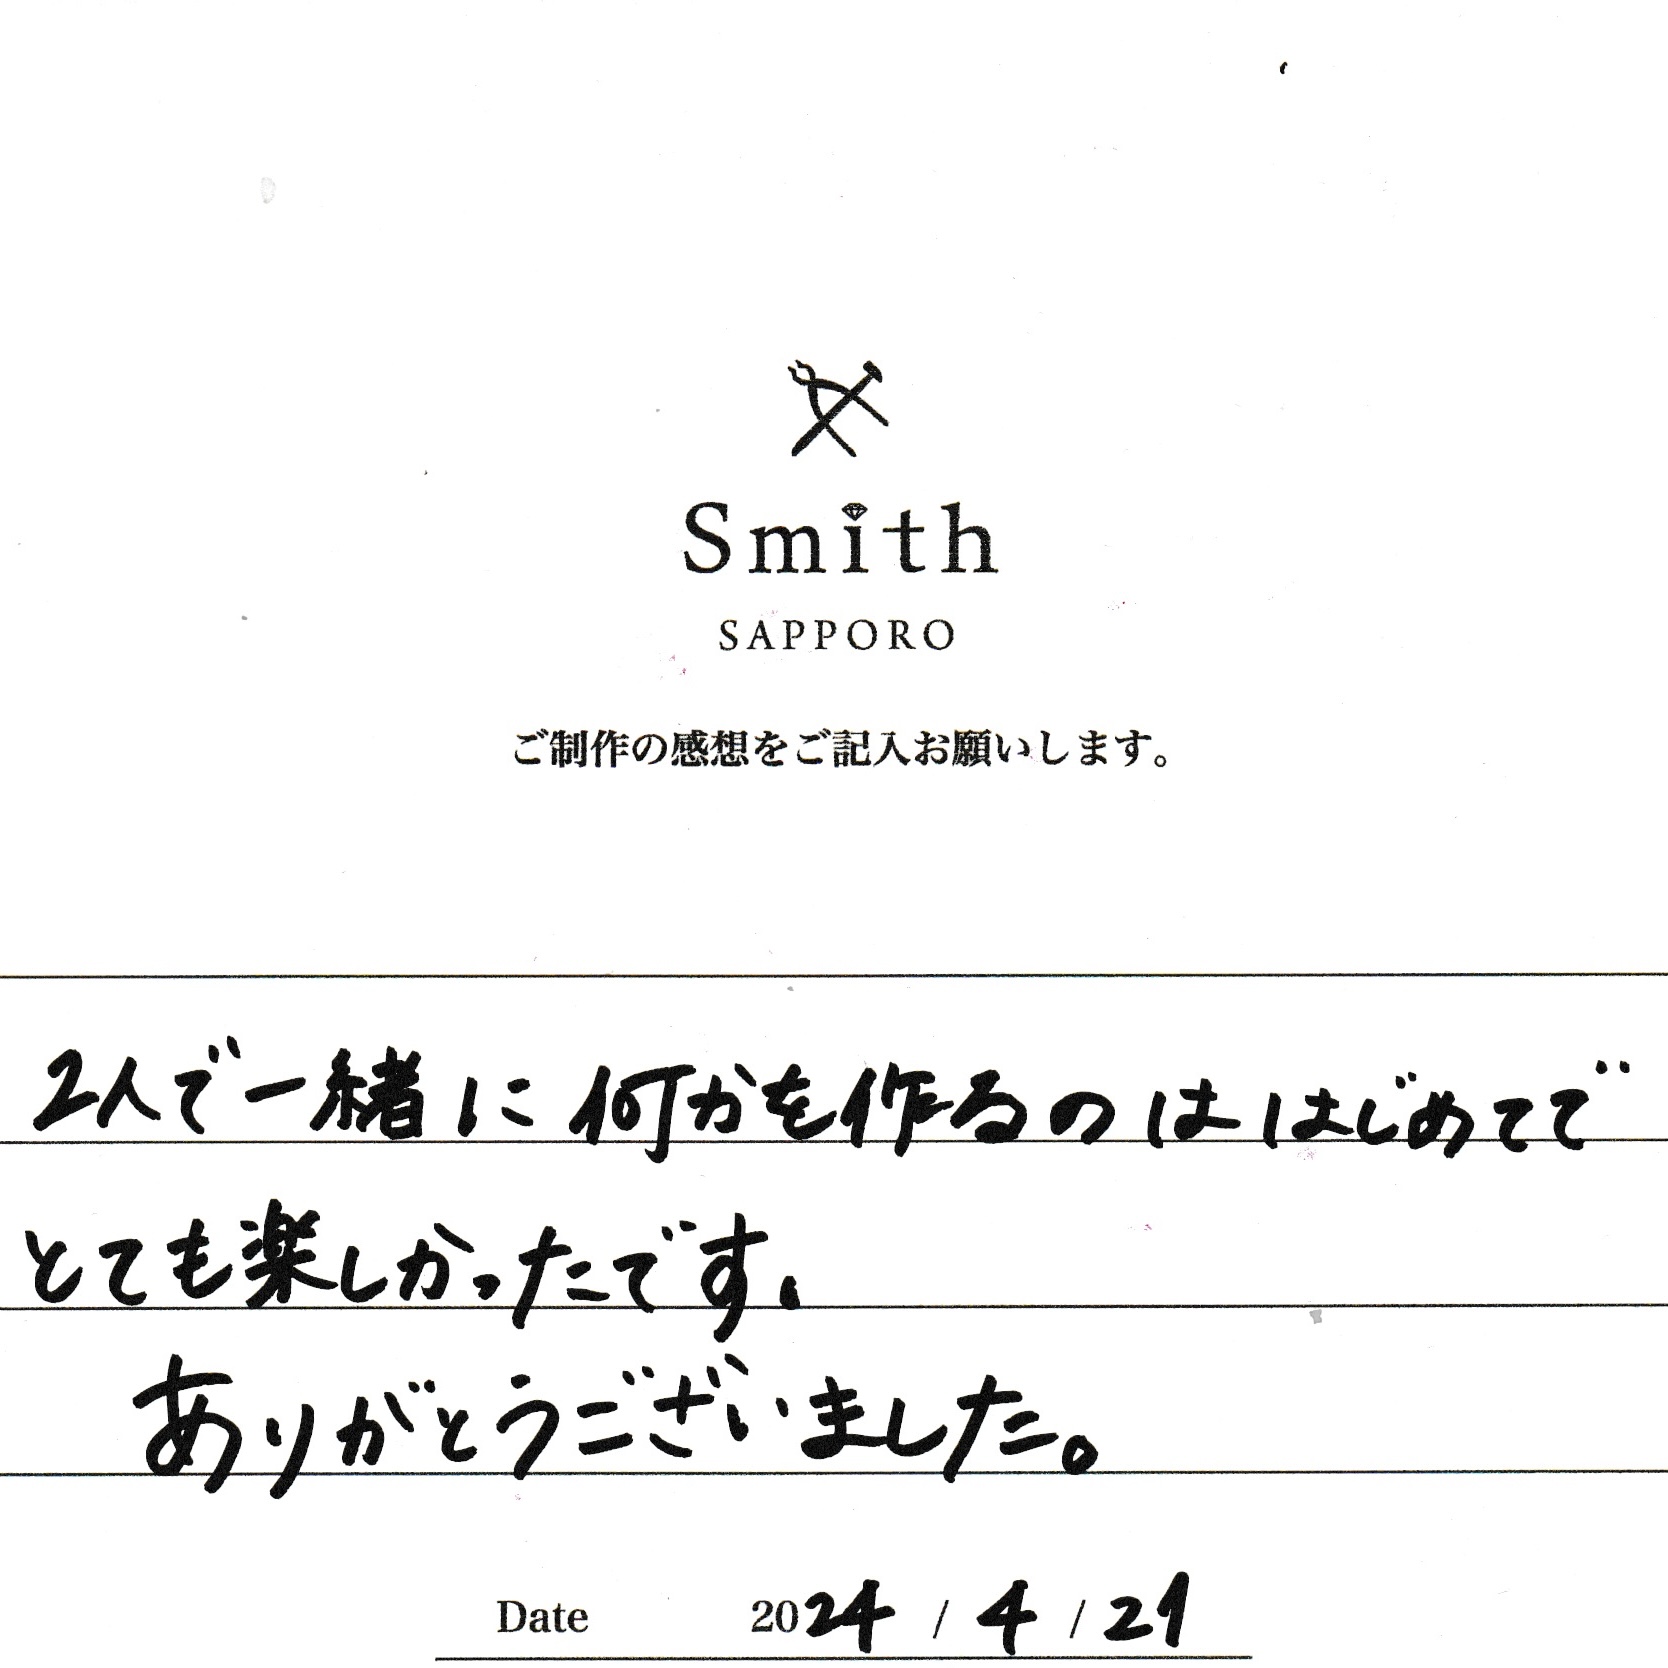 Smith
SAPPORO
ご制作の感想をご記入お願いします。
2人で一緒に何かを作るのははじめてで
とても楽しかったです、
ありがとうございました。
Date 2024 / 4 / 21